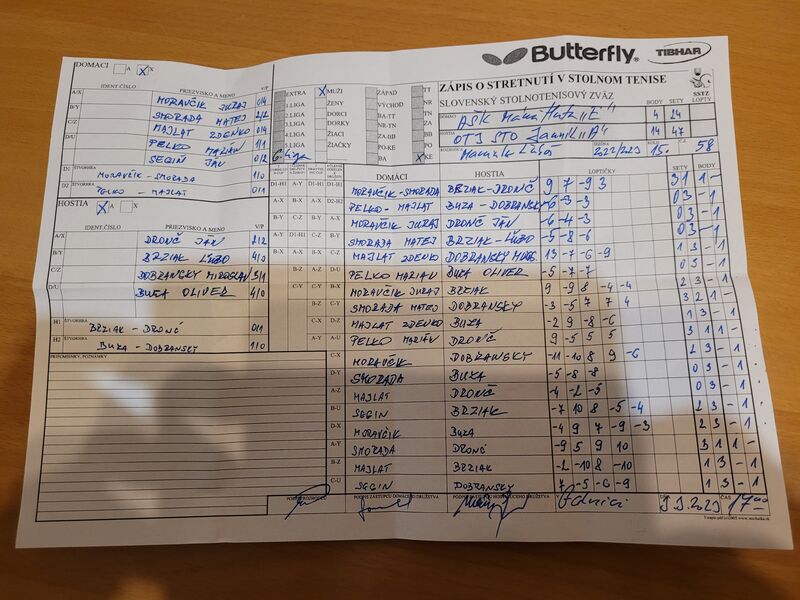 Butterfly TIBHAR
ZÁPIS O STRETNUTÍ V STOLNOM TENISE
SLOVENSKÝ STOLNOTENISOVÝ ZVÄZ
SSTZ
DOMÁCI A X
IDENT ČÍSLO PRIEZVISKO A MENO V/P
A/X MORAVČIK JURAJ 0/4
B/Y SMORADA MATEJ 2/2
C/Z MAJLAT ZDENKO 0/4
D/U PELKO MARIÁN 1/1
SEGIŇ JÁN 0/2
D1 ŠTVORHRA MORAVČIK - SMORADA 1/0
D2 ŠTVORHRA PELKO - MAJLAT 0/1
HOSTIA A X
IDENT.ČÍSLO PRIEZVISKO A MENO V/P
A/X DRONČ JÁN 2/2
B/Y BRZIAK ĽUBO 4/0
C/Z DOBRANSKÝ MIROSLAV
D/U BUZA OLIVER 4/0
H1 ŠTVORHRA BRZIAK - DRONČ 0/1
H2 ŠTVORHRA BUZA - DOBRANSKÝ 1/0
PRIPOMIENKY, POZNÁMKY
EXTRA X MUŽI ZÁPAD TT
1.LIGA ŽENY VÝCHOD NR
2.LIGA DORCI BA-TT TN
3.LIGA DORKY NR-TN ZA
4.LIGA ŽIACI ZA-BB BB
5.LIGA ŽIAČKY PO-KE PO
6. liga BA X KE
DOMÁCI BODY SETY LOPTY
4 24
HOSTIA OTJ STO "A" 14 47
ROZHODCA SEZÓNA 2022/2023 KOLO 15. Č.S. 58
DOMÁCI HOSTIA LOPTIČKY SETY BODY
D1-H1 MORAVČIK - SMORADA BRZIAK - DRONČ 9 7 -9 3 3 1 1 -
D2-H2 PELKO - MAJLAT BUZA - DOBRANSKÝ -6 -3 -3 0 3 - 1
A-X MORAVČIK JURAJ DRONČ JÁN -6 -4 -3 0 3 - 1
B-Y SMORADA MATEJ BRZIAK ĽUBO -5 -8 -6 0 3 - 1
C-Z MAJLAT ZDENKO DOBRANSKÝ 13 -7 -6 -9 1 3 - 1
D-U PELKO MARIAN BUZA OLIVER -5 -7 -7 0 3 - 1
A-Y MORAVČIK JURAJ BRZIAK 9 -9 8 -4 -4 2 3 - 1
B-X SMORADA MATEJ DOBRANSKÝ -3 -5 7 7 4 3 2 1 -
MAJLAT ZDENKO BUZA -2 9 -8 -6 1 3 - 1
PELKO MARIÁN DRONČ 9 -5 5 5 3 1 1 -
C-X MORAVČIK DOBRANSKÝ -11 -10 8 9 -6 2 3 - 1
D-Y SMORADA BUZA -5 -8 -8 0 3 - 1
A-Z MAJLAT DRONČ -4 -2 -5 0 3 - 1
B-U SEGIN BRZIAK -7 10 8 -5 -4 2 3 - 1
D-X MORAVČIK BUZA -4 9 7 -9 -3 2 3 - 1
A-Y SMORADA DRONČ -9 5 9 10 3 1 1 -
B-Z MAJLAT BRZIAK -2 -10 8 -10 1 3 - 1
C-U SEGIN DOBRANSKÝ 7 -5 -6 -9 1 3 - 1
PODPIS ROZHODCU PODPIS ZÁSTUPCU DOMÁCEHO DRUŽSTVA PODPIS ZÁSTUPCU HOSŤUJÚCEHO DRUŽSTVA V DŇA ČAS 17:00